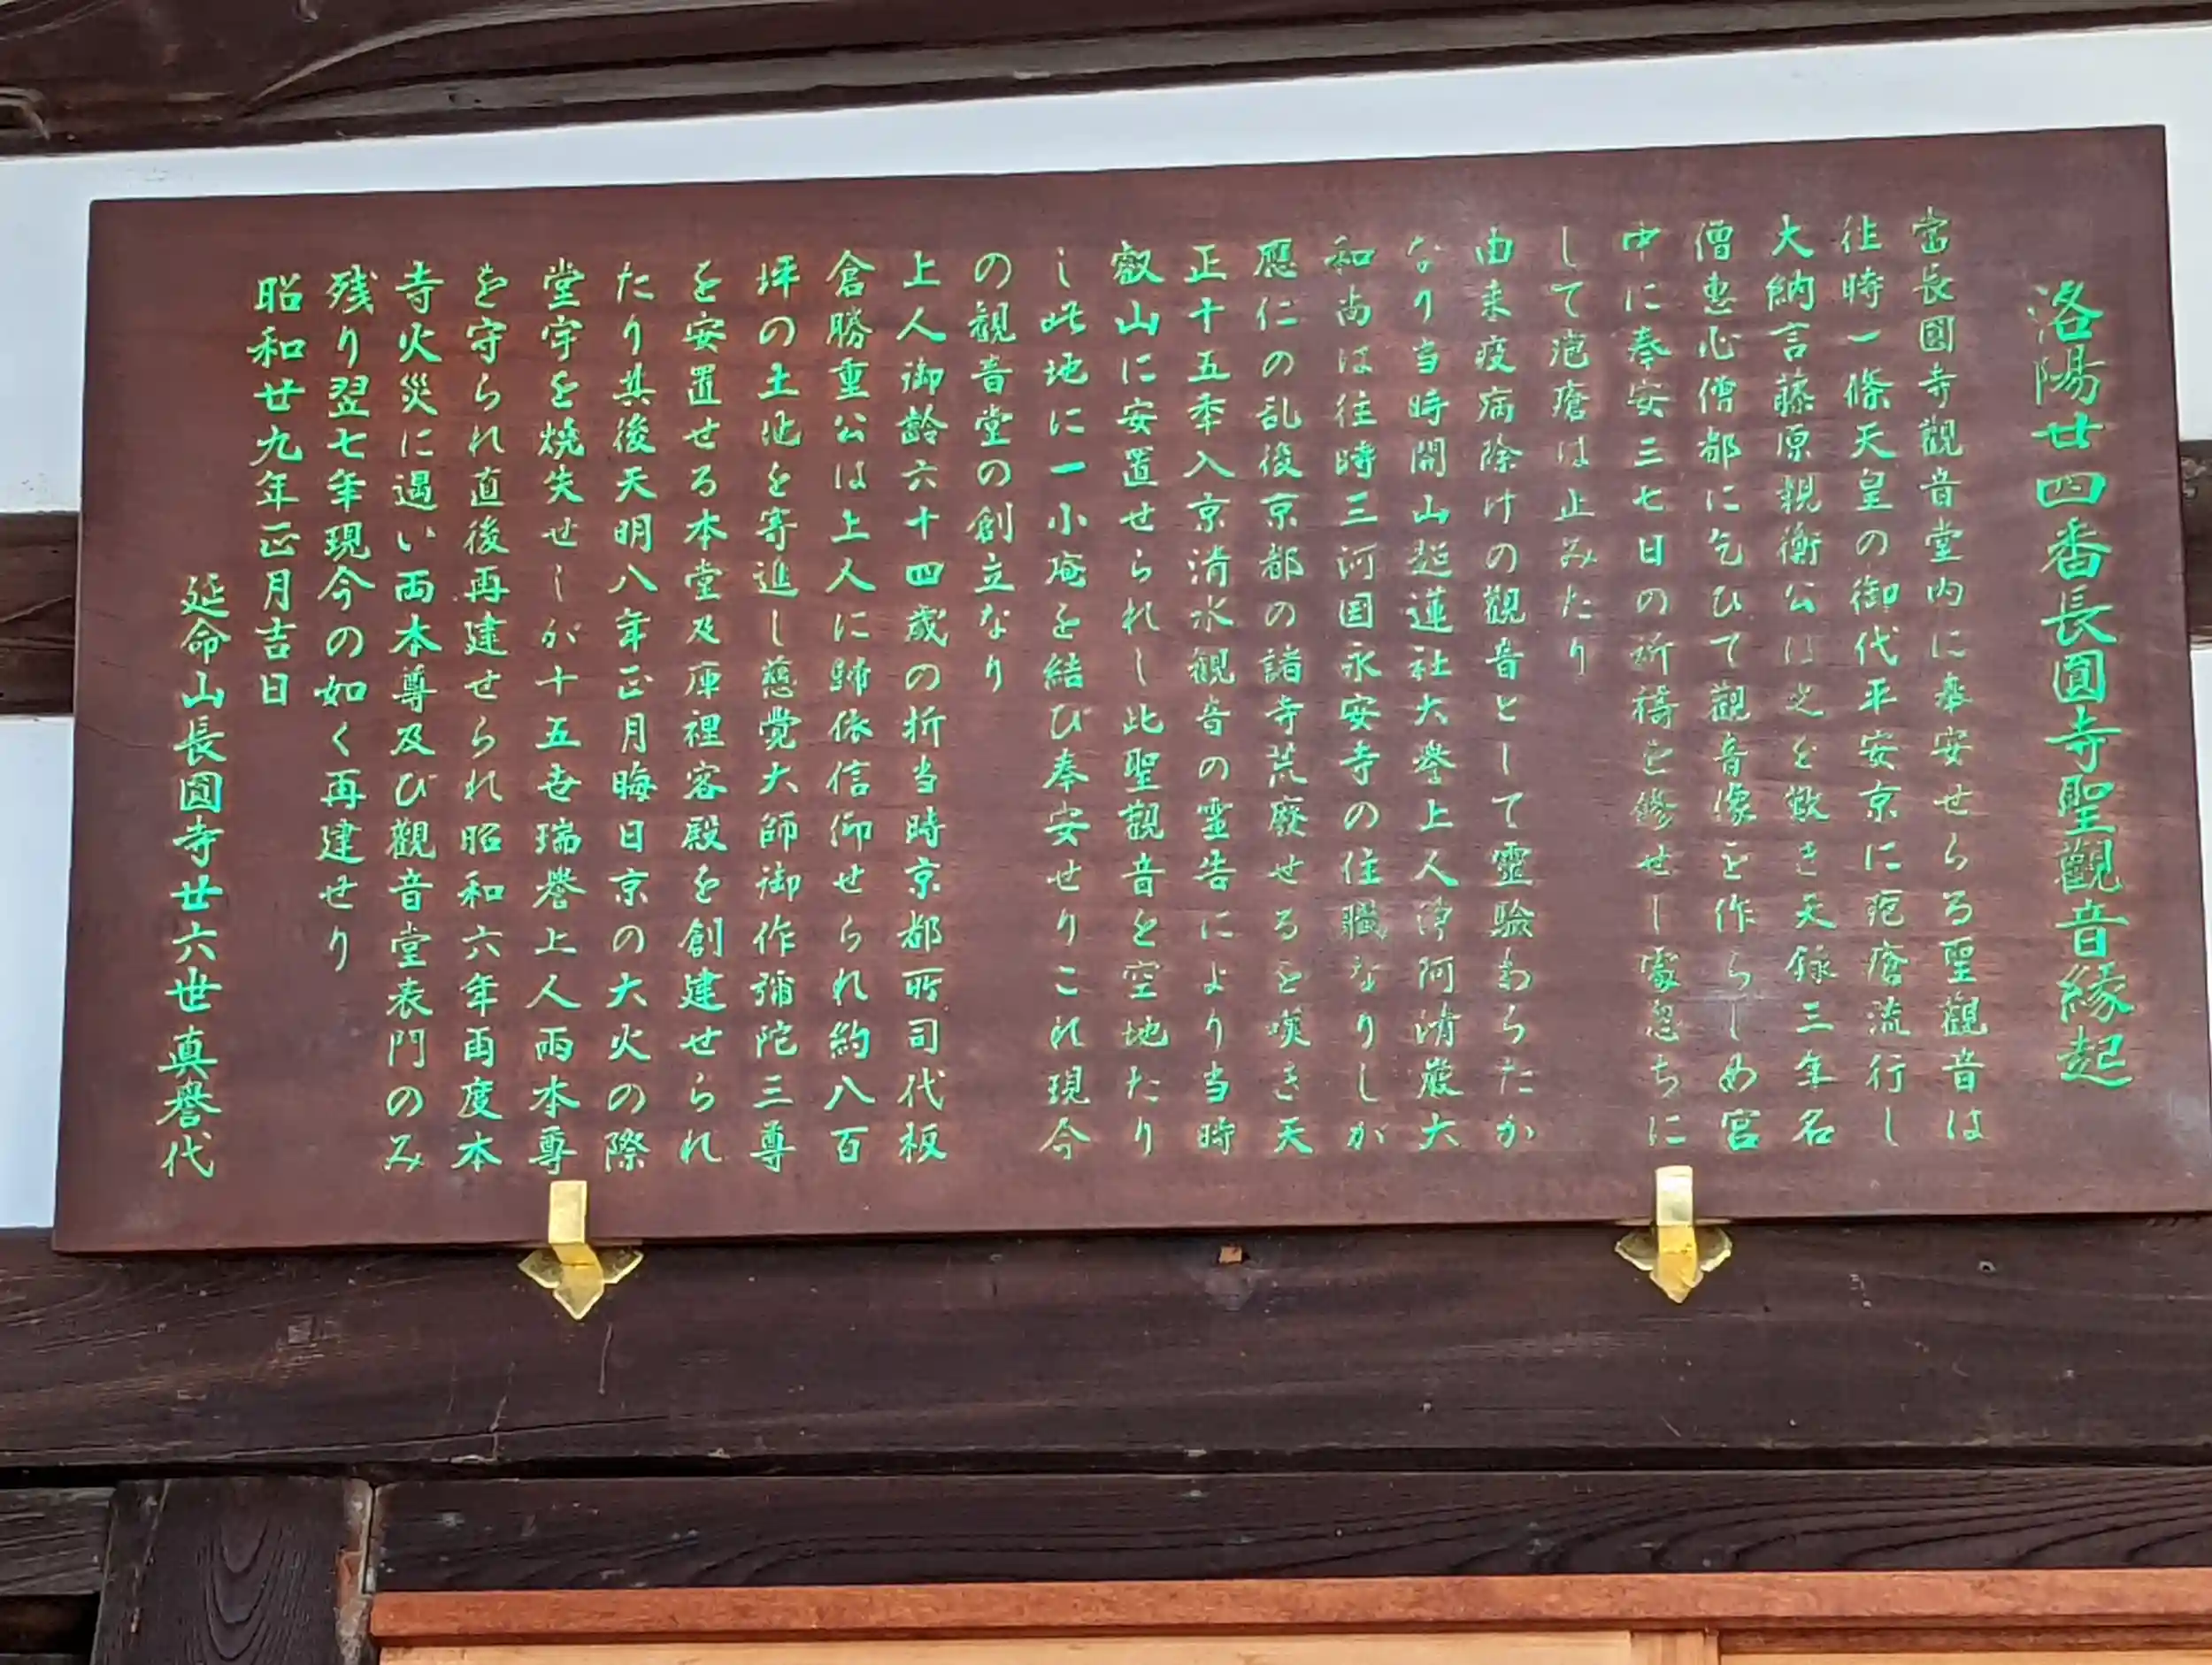 洛陽廿四番長圓寺聖觀音緣起
當長圓寺觀音堂内に奉安せらる聖觀音は
往時一條天皇の御代平安京に疱瘡流行し
大納言藤原親衡公は之を歎き天録三年名
僧恵心僧都に乞ひて觀音像を作らしめ宮
中に奉安三七日の祈禱を修せし處忽ちに
して疱瘡は止みたり
由来疫病除けの觀音として霊験あらたか
なり当時開山超蓮社大誉上人浄阿清巌大
和尚は往時三河国永安寺の住職なりしが
應仁の乱後京都の諸寺荒廢せるを嘆き天
正十五年入京清水觀音の霊告により当時
叡山に安置せられし此聖觀音を空地たり
し此地に一小庵を結び奉安せりこれ現今
の観音堂の創立なり
上人御齢六十四歳の折当時京都所司代板
倉勝重公は上人に歸依信仰せられ約八百
坪の土地を寄進し慈覺大師御作彌陀三尊
を安置せる本堂及庫裡客殿を創建せられ
たり其後天明八年正月晦日京の大火の際
堂宇を焼失せしが十五世瑞誉上人両本尊
を守られ直後再建せられ昭和六年両度本
寺火災に遇い両本尊及び觀音堂表門のみ
残り翌七年現今の如く再建せり
昭和廿九年正月吉日
延命山長圓寺廿六世真誉代